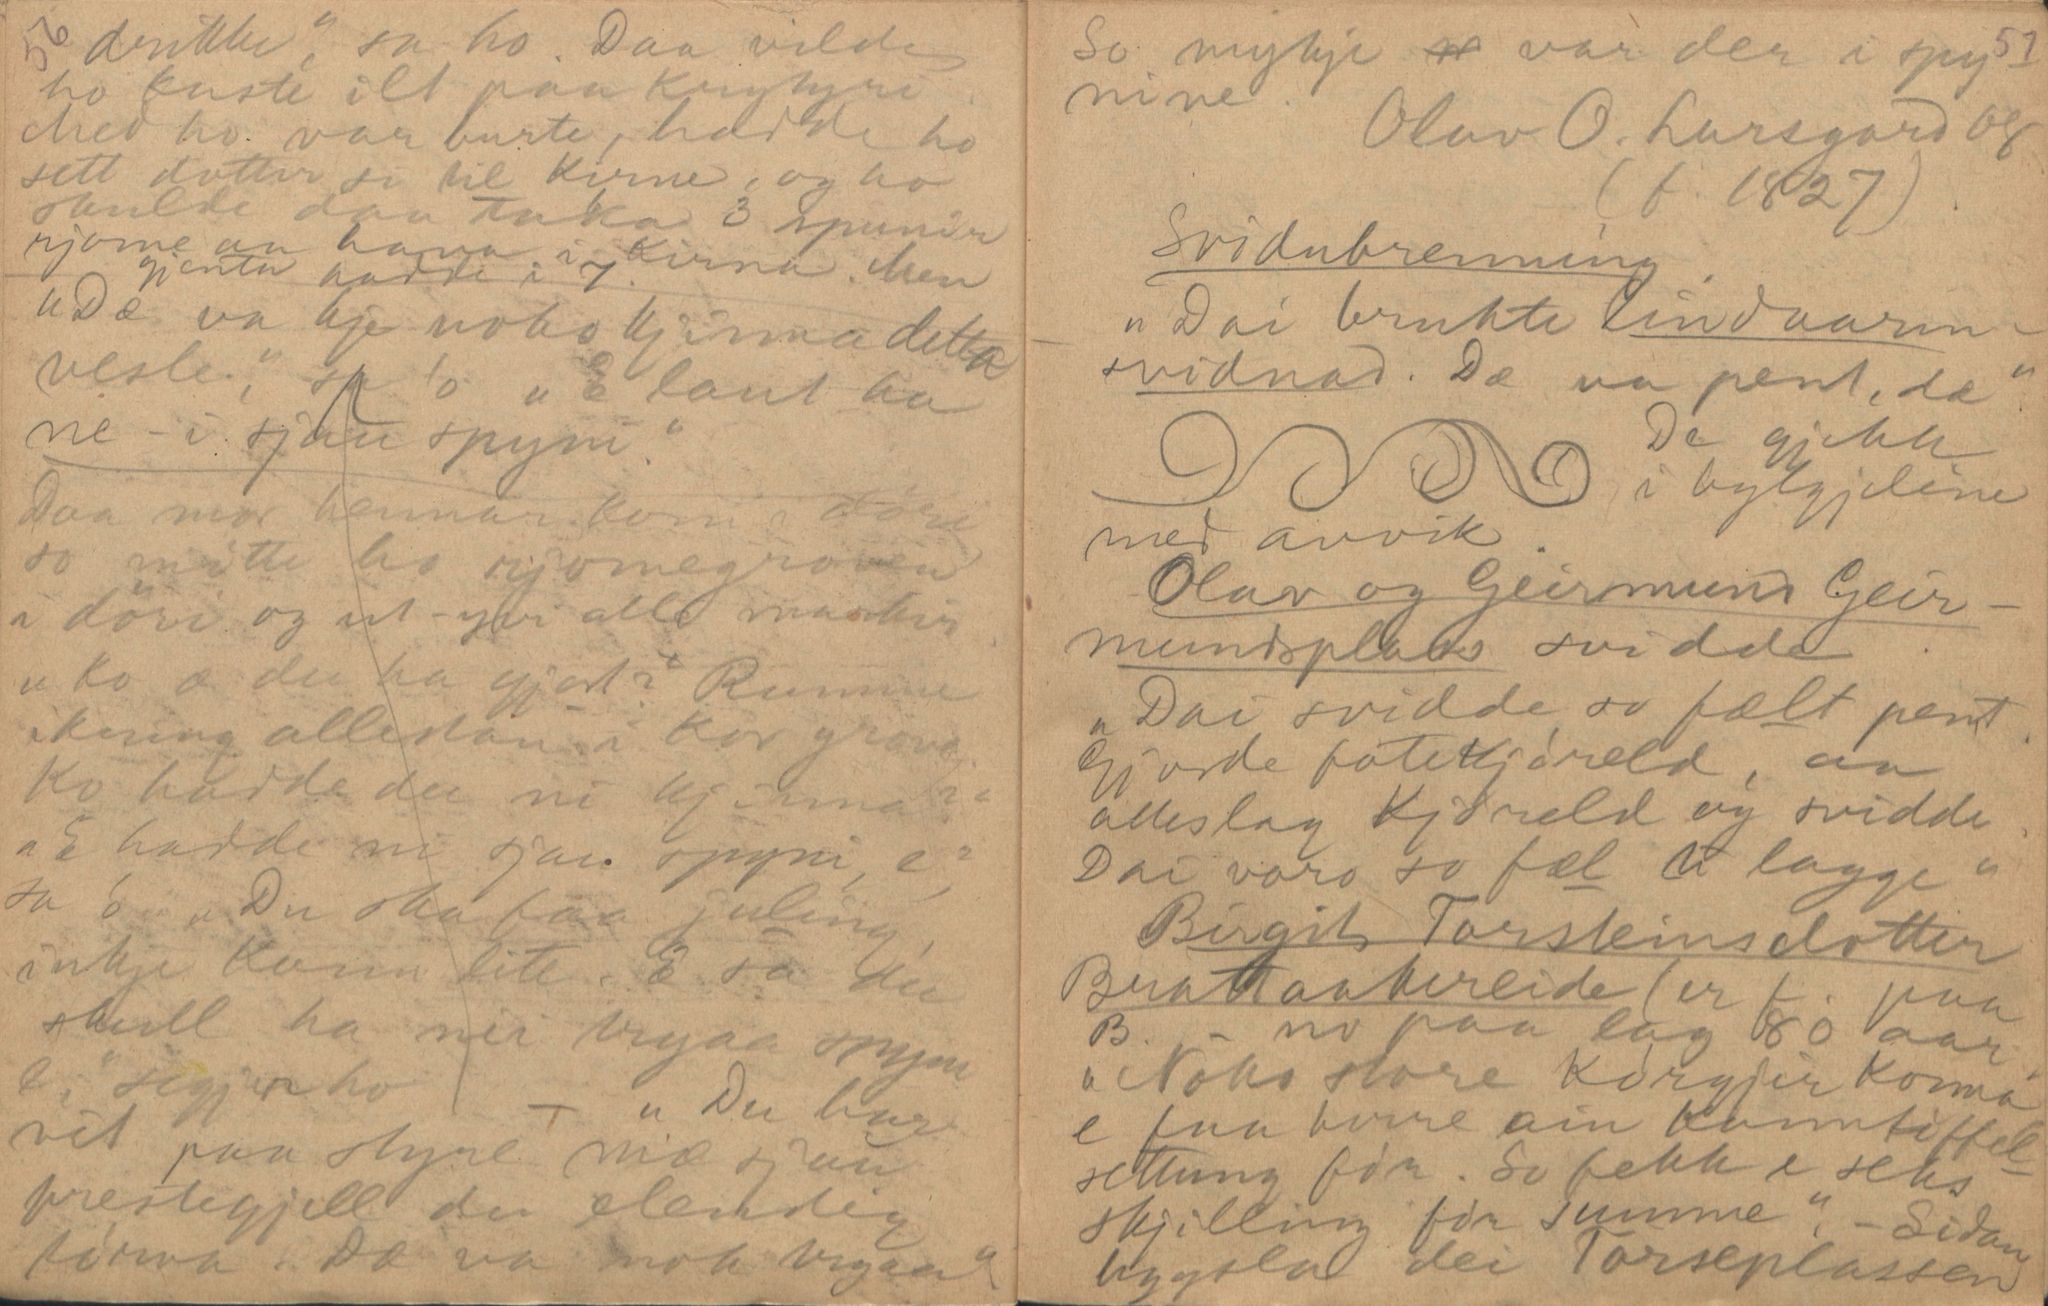 56
drikke", sa ho. Daa vilde
ho kaste ilt paa krytyri.
Med ho var burte, hadde ho
sett dotter si til kirne, og ho
skulde daa taka 3 spunir
rjome aa hava i kirna. Men
gjenta hadde i 7.
"Dæ va kje noko kjinna detta
vesle," sa 'o "E laut ha
ne-i sjau spyni".
Daa mor hennar kom i döri
so mötte ho rjomegrauen
i döri og ut-yvi alle
"Ko æ du ha gjort?" Rumme
ikring allestan i kor
Ko hadde du ni kjinna?"
"E hadde ni sjau spyni, e",
sa 'o. "Du ska faa juling,
inkje kann lite. E sa du
skull ha nei trjaa spyni
e," segjer ho — "Du har
vit paa styre mæ sjau
prestegjell du elendig
. Dæ va nok trjaa"
51
So mykje var der i spy
nine.
Olav O. Larsgard 08
(f. 1827)
Svidubrenning.
"Dai brukte lindaarm-
svidnad. Dæ va pent, dæ"
De gjekk
i bylgjeline
med avvik.
Olav og Geirmund Geir-
mundsplass svidde.
"Dai svidde so fælt pent.
Gjorde fotekjöreld, aa
alleslag kjöreld og svidde.
Dai voro so fæl ti lagge"
Birgit Torsteinsdotter
Brattaabereide (er f. paa
B. - no paa lag 80 aar
"Noko store körgjir komma
e faa borre ain kanntiffel-
settung för. So fekk e seks
skjilling för summe". - Sidan
bygsla dei Torseplassen